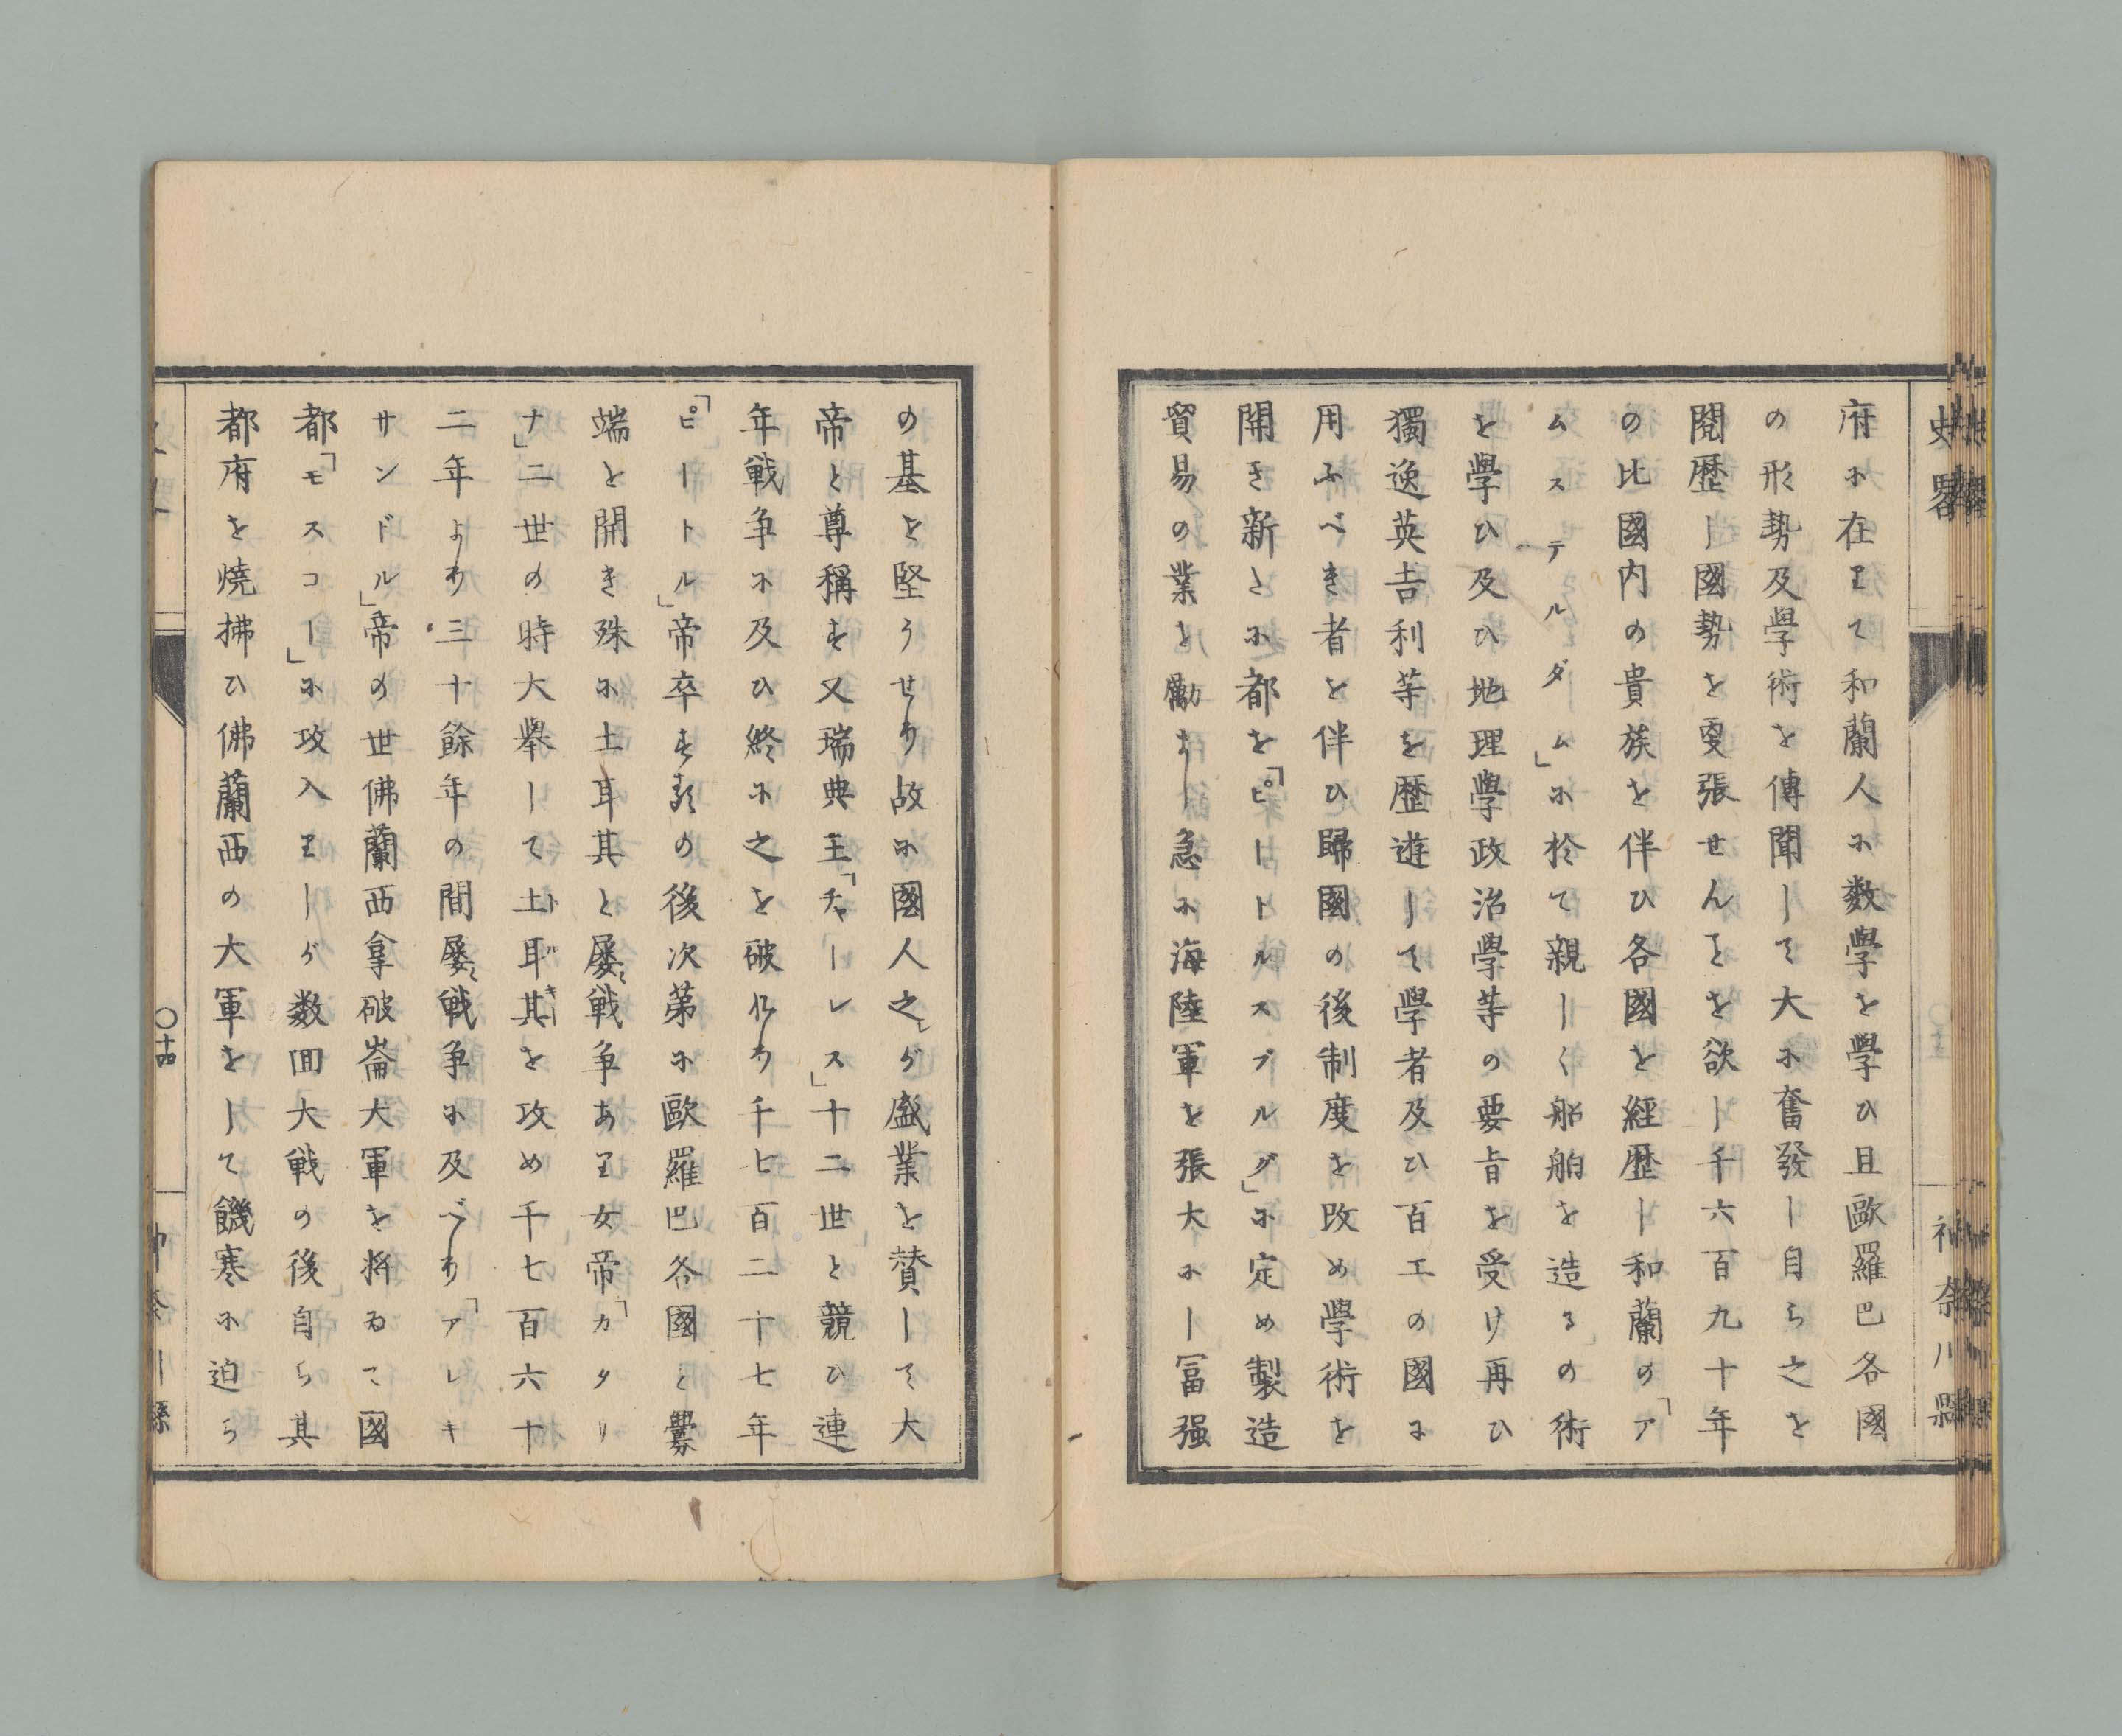 史略
神奈川縣
府に在りて和蘭人に数學を學ひ且歐羅巴各國
の形勢及學術を傳聞して大に奮發し自ら之を
閲歴し國勢を更張せんとを欲し千六百九十年
の比國内の貴族を伴ひ各國を經歴し和蘭の「ア
ムステルダーム」に於て親しく船舶を造るの術
を學ひ及ひ地理學政治學等の要旨を受け再ひ
獨逸英吉利等を歴遊して學者及ひ百工の國に
用ふべき者を伴ひ歸國の後制度を改め學術を
開き新たに都を「ピートルスブルグ」に定め製造
貿易の業を勵まし急に海陸軍を張大にし冨强
の基を堅うせり故に國人之が盛業を賛して大
帝と尊稱す又瑞典王「チャーレス」十二世と競ひ連
年戰争に及ひ終に之を破れり千七百二十七年
「ピートル」帝卒す其の後次第に歐羅巴各國と釁
端を開き殊に土耳其と屡〻戰争あり女帝「カタリ
ナ」二世の時大擧して土耳其を攻め千七百六十
二年より三十餘年の間屡〻戰争に及べり「アレキ
サンドル」帝の世佛蘭西拿破崙大軍を将ゐて國
都「モスコー」に攻入りしが数囬大戰の後自ら其
都府を燒拂ひ佛蘭西の大軍をして饑寒に迫ら
〇十四